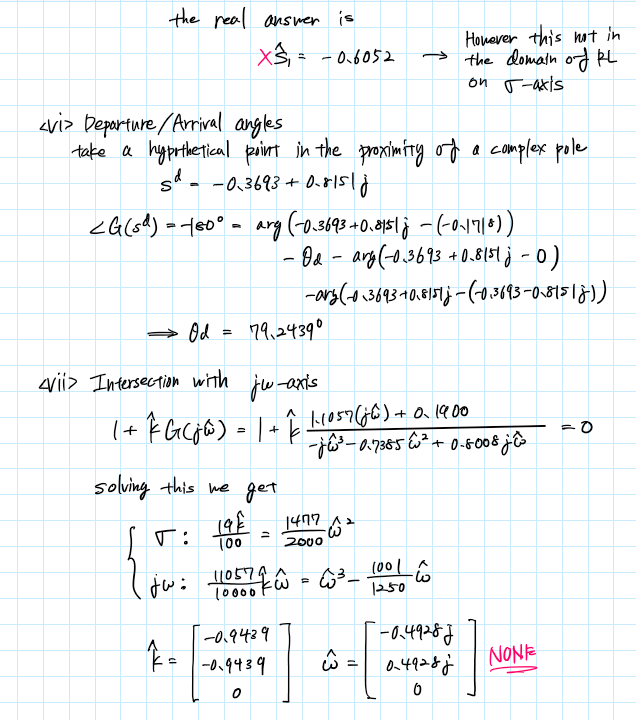 the real answer is
×ŝ₁ = -0.6052 → However this not in
the domain of RL
on σ-axis
<vi> Departure/Arrival angles
take a hypthetical point in the proximity of a complex pole
s^d = -0.3693 + 0.8151j
∠G(s^d) = -180° = arg(-0.3693+0.8151j - (-0.1718))
- θd - arg(-0.3693+0.8151j - 0)
-arg(-0.3693+0.8151j-(-0.3693-0.8151j))
⟹ θd = 79.2439°
<vii> Intersection with jw-axis
1 + k̂G(jω̂) = 1 + k̂ (1.1057(jω̂) + 0.1900)/(-jω̂³ - 0.7385ω̂² + 0.8008jω̂) = 0
solving this we get
σ: 19k̂/100 = 1477/2000 ω̂²
jω: 11057/10000 k̂ω̂ = ω̂³ - 1001/1250 ω̂
k̂ = [-0.9439 -0.9439 0] ω̂ = [-0.4928j 0.4928j 0] NONE